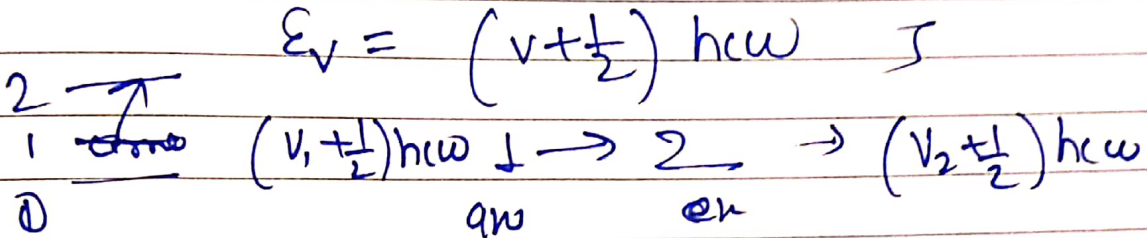 εv = (v+1/2) hcω J
2
1 (V₁+1/2)hcω 1 → 2 → (V₂+1/2)hcω
0